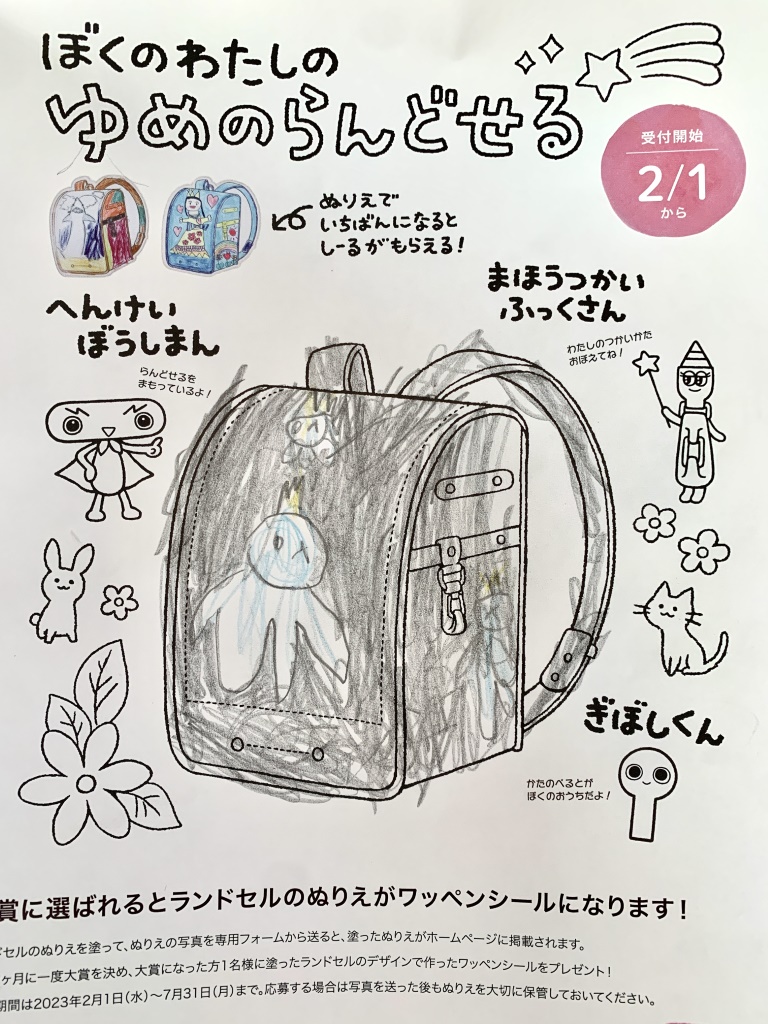 ぼくのわたしの
ゆめのらんどせる
受付開始
2/1
から
ぬりえで
いちばんになると
しーるがもらえる！
へんけい
ぼうしまん
らんどせるを
まもっているよ！
まほうつかい
ふっくさん
わたしのつかいかた
おぼえてね！
ぎぼしくん
かたのべるとが
ぼくのおうちだよ！
賞に選ばれるとランドセルのぬりえがワッペンシールになります！
ドセルのぬりえを塗って、ぬりえの写真を専用フォームから送ると、塗ったぬりえがホームページに掲載されます。
ヶ月に一度大賞を決め、大賞になった方1名様に塗ったランドセルのデザインで作ったワッペンシールをプレゼント！
期間は2023年2月1日(水)〜7月31日(月)まで。応募する場合は写真を送った後もぬりえを大切に保管しておいてください。